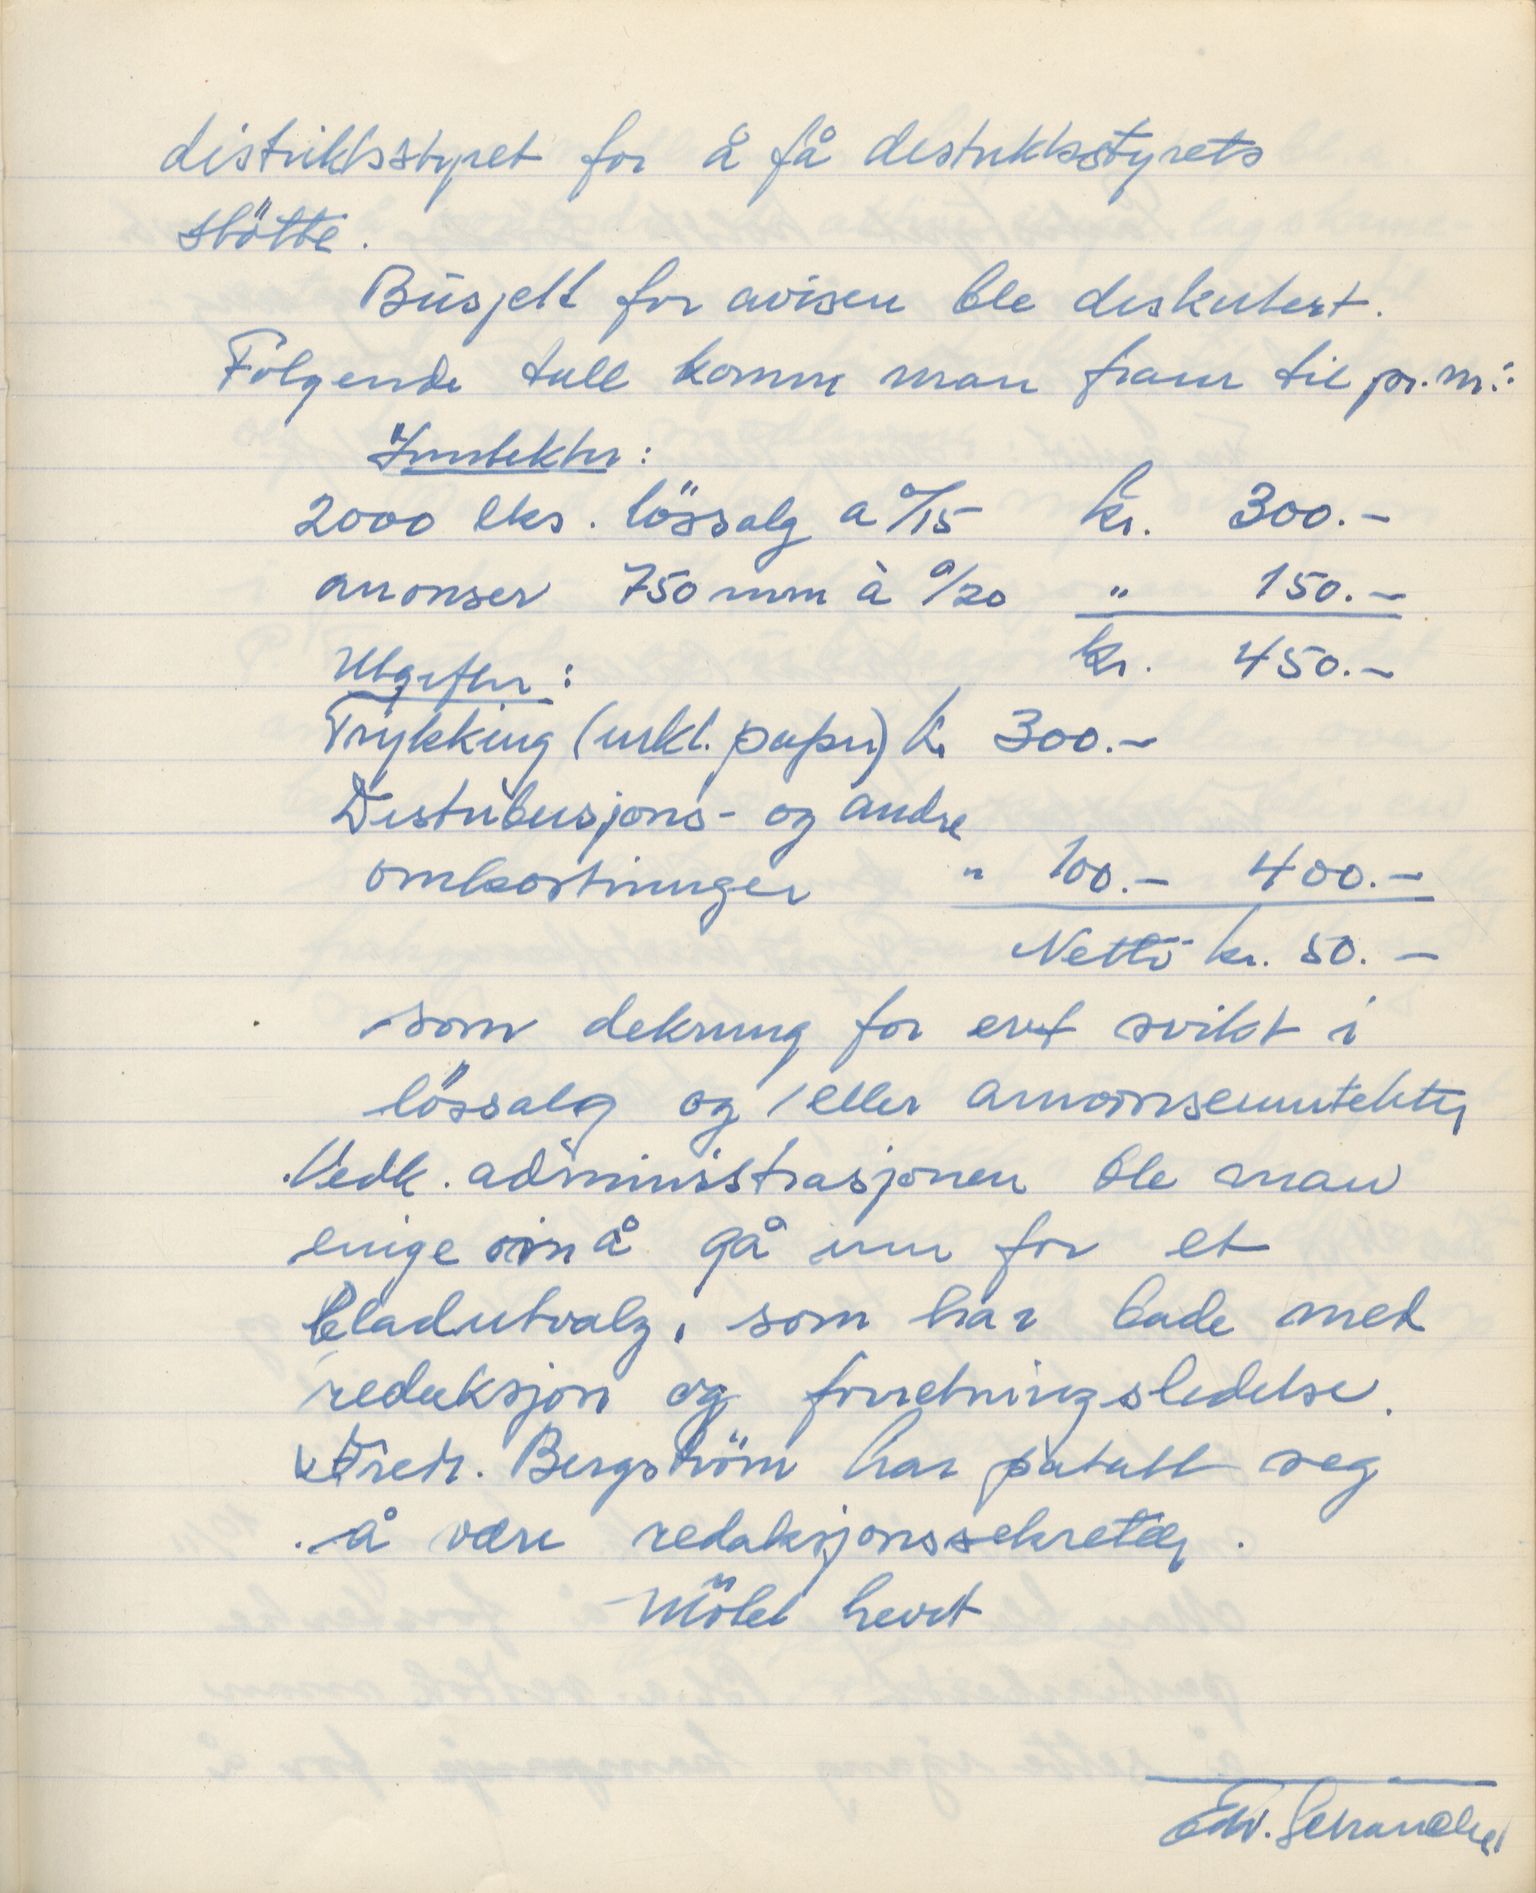 distriktsstyret for å få distriktsstyrets
støtte.
Busjett for avisen ble diskutert.
Følgende tall komm man fram til pr. m.:
Inntekter:
2000 eks. lössalg a º/15 kr. 300.-
anonser 750 mm à º/20 " 150.-
kr. 450.-
Utgifter:
Trykking (inkl. papir) kr 300.-
Distribusjons- og andre
omkostninger " 100.- 400.-
Netto kr. 50.-
som dekning for evt svikt i
lössalg og / eller annonseinntekter
Vedk. administrasjonen ble man
enige om å gå inn for et
bladutvalg, som har både med
redaksjon og forretningsledelse.
Fredr. Bergström har påtatt seg
å være redaksjonssekretær.
Mötet hevet
Edv.